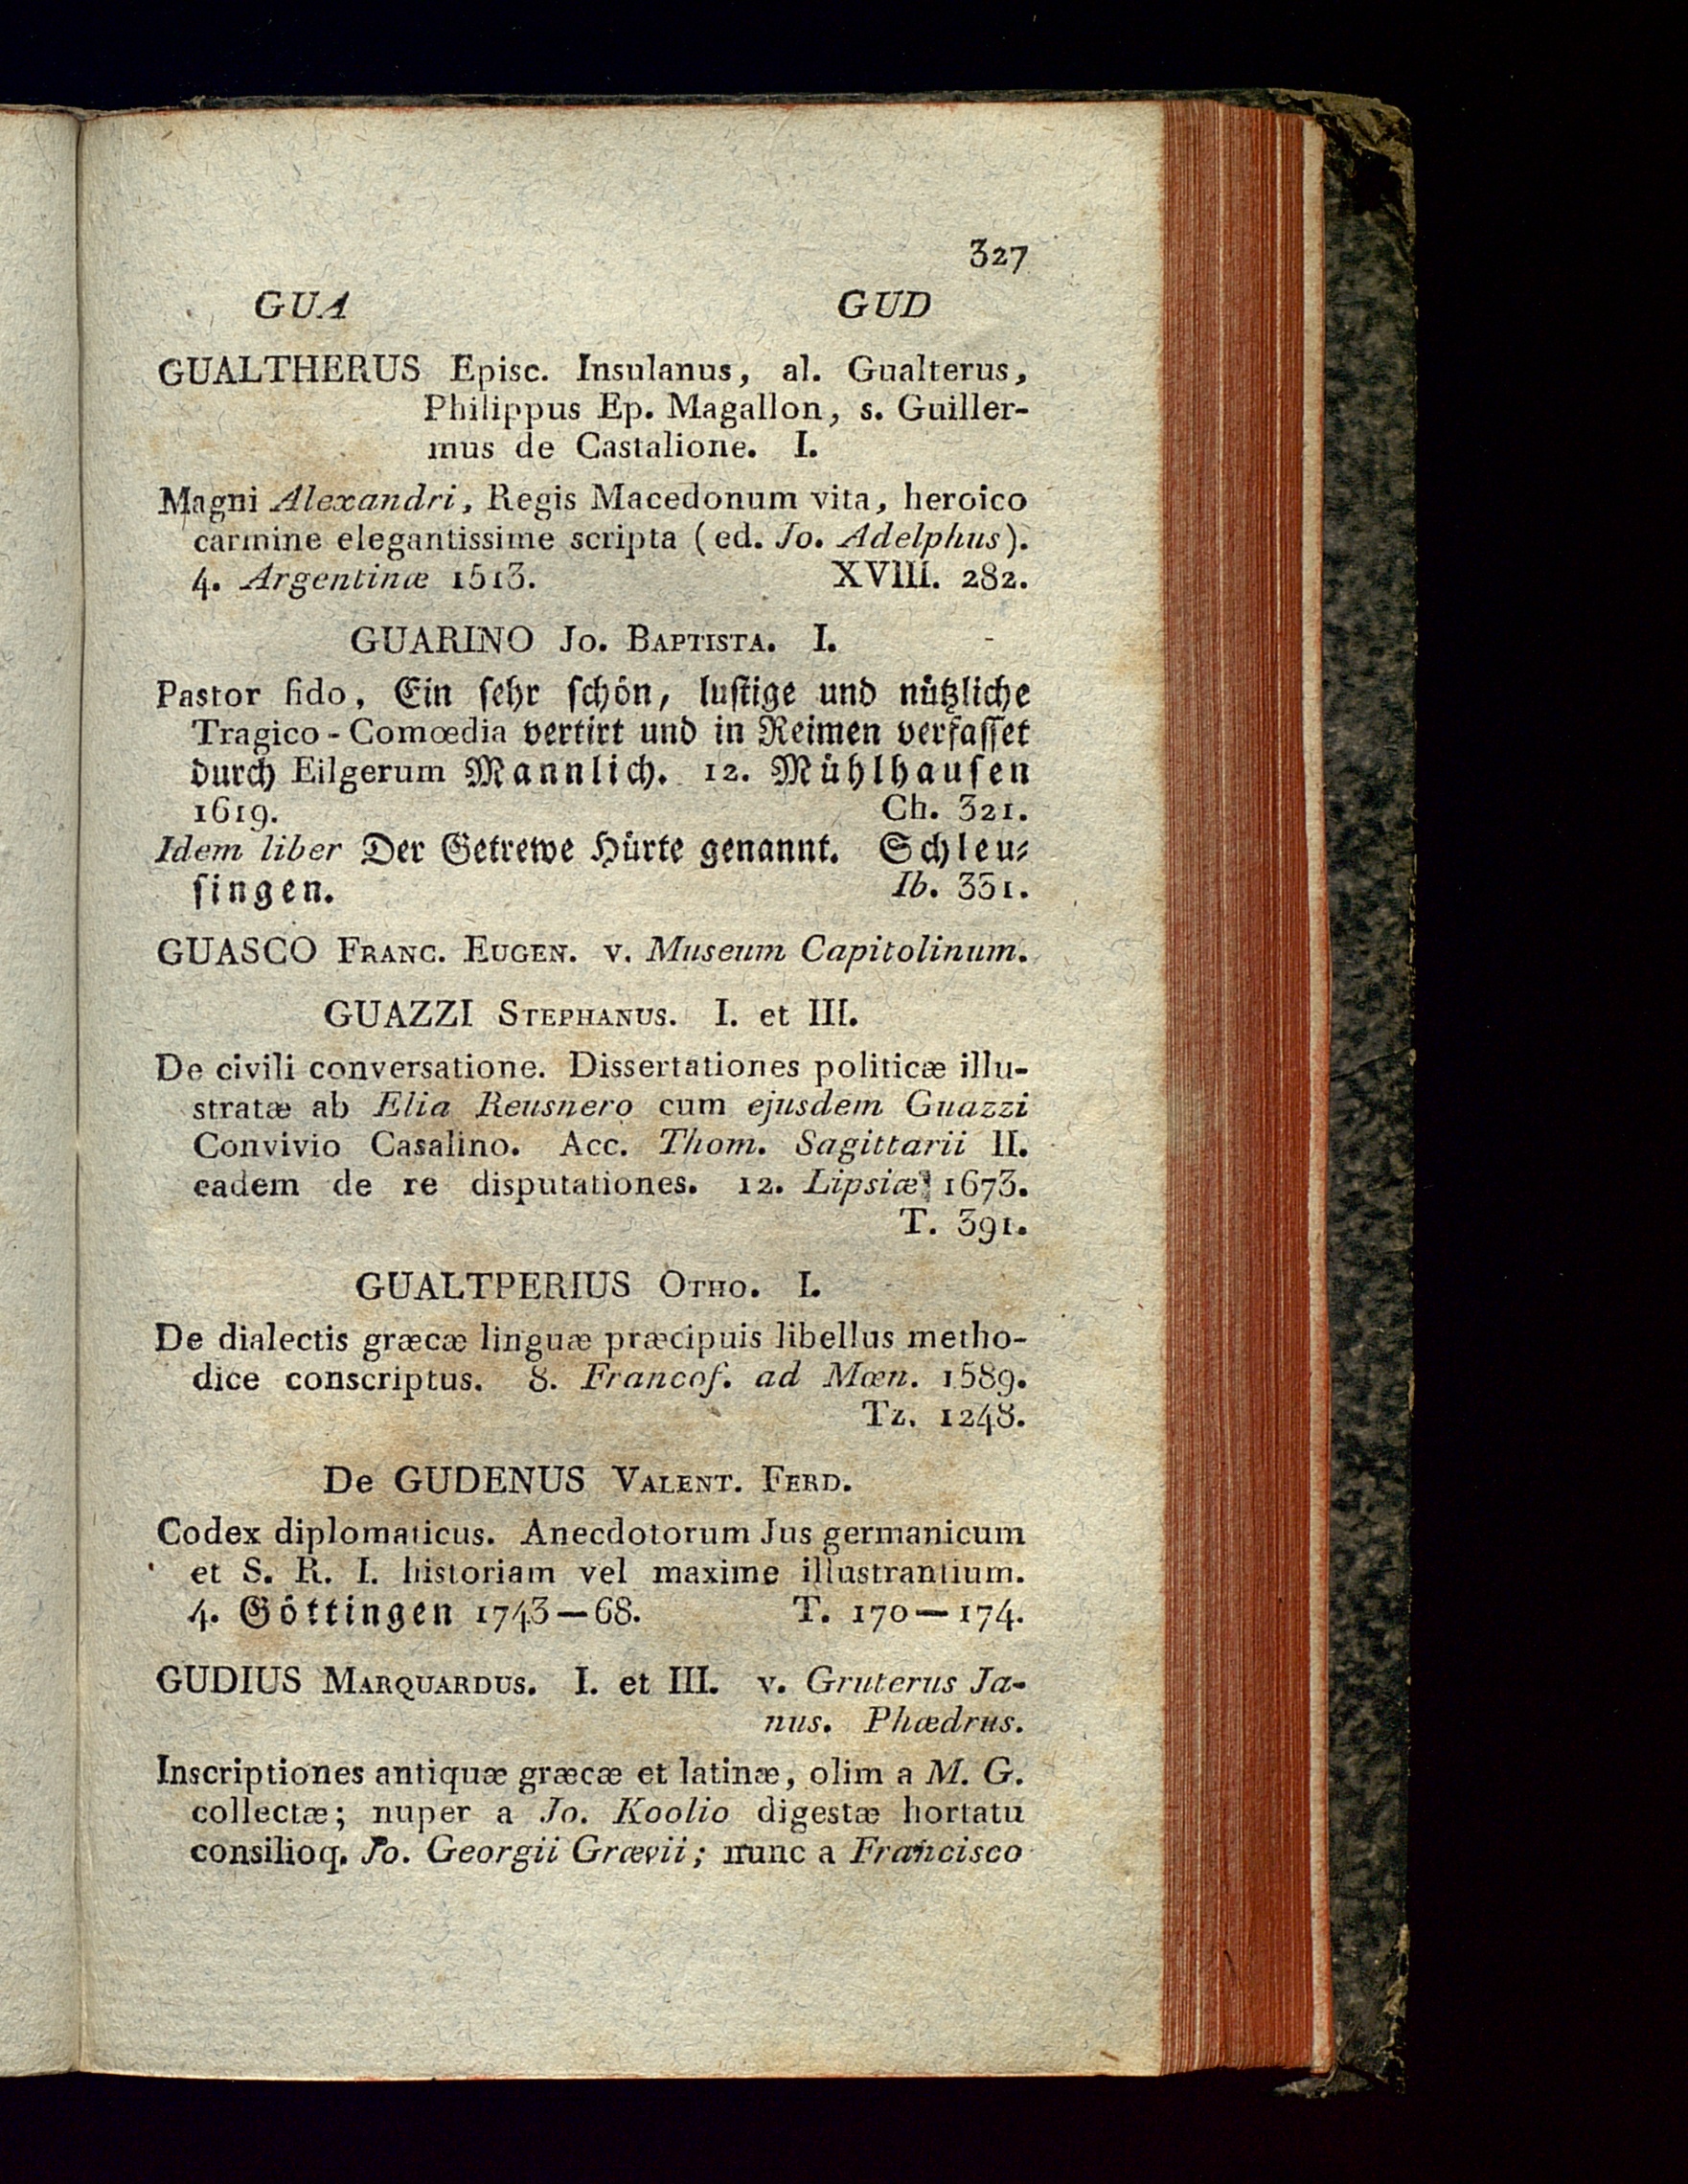 327
GUA GUD
GUALTHERUS Episc. Insulanus, al. Gualterus,
Philippus Ep. Magallon, s. Guiller-
mus de Castalione. I.
Magni Alexandri, Regis Macedonum vita, heroico
carmine elegantissime scripta (ed. Jo. Adelphus).
4. Argentinæ 1513. XVIII. 282.
GUARINO Jo. Baptista. I.
Pastor fido, Ein ſehr ſchön, luſtige und nützliche
Tragico-Comœdia vertirt und in Reimen verfaſſet
durch Eilgerum Mannlich. 12. Mühlhauſen
1619. Ch. 321.
Idem liber Der Getrewe Hürte genannt. Schleu⸗
ſingen. Ib. 331.
GUASCO Franc. Eugen. v. Museum Capitolinum.
GUAZZI Stephanus. I. et III.
De civili conversatione. Dissertationes politicæ illu-
stratæ ab Elia Reusnero cum ejusdem Guazzi
Convivio Casalino. Acc. Thom. Sagittarii II.
eadem de re disputationes. 12. Lipsiæ 1673.
T. 391.
GUALTPERIUS Otho. I.
De dialectis græcæ linguæ præcipuis libellus metho-
dice conscriptus. 8. Francof. ad Mœn. 1589.
Tz. 1248.
De GUDENUS Valent. Ferd.
Codex diplomaticus. Anecdotorum Jus germanicum
et S. R. I. historiam vel maxime illustrantium.
4. Göttingen 1743—68. T. 170—174.
GUDIUS Marquardus. I. et III. v. Gruterus Ja-
nus. Phædrus.
Inscriptiones antiquæ græcæ et latinæ, olim a M. G.
collectæ; nuper a Jo. Koolio digestæ hortatu
consilioq. Jo. Georgii Grævii; nunc a Francisco